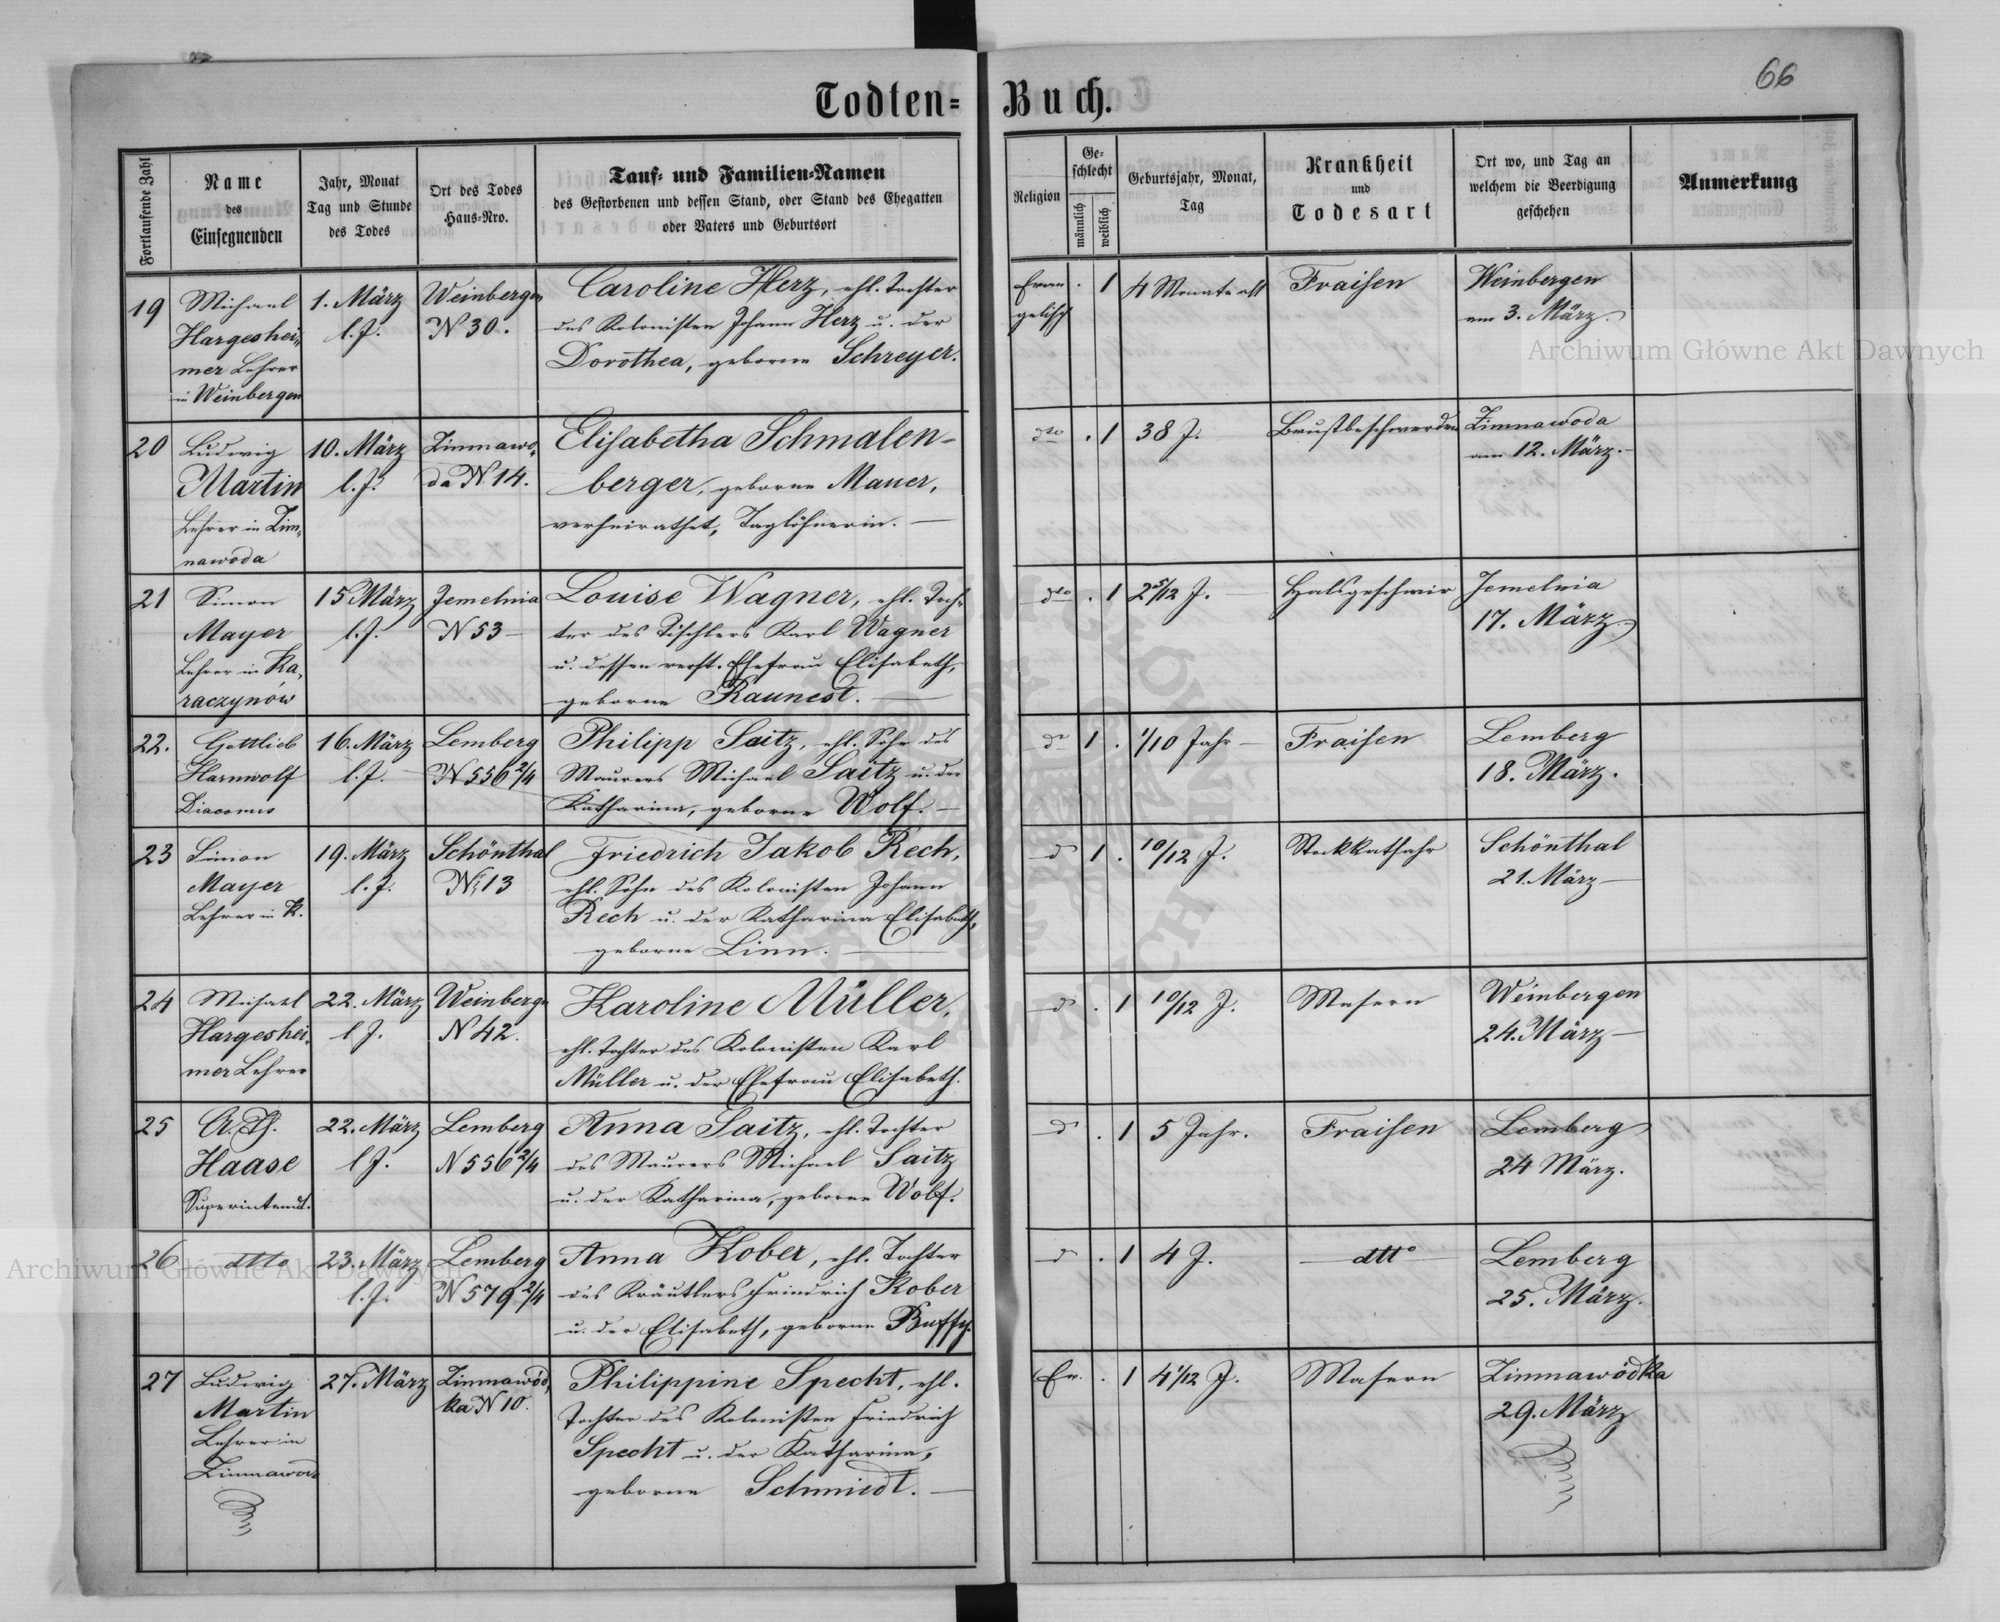 66
Todten- Buch.
Fortlaufende Zahl
Name
des
Einsegnenden
Jahr, Monat
Tag und Stunde
des Todes
Ort des Todes
Haus-Nro.
Tauf- und Familien-Namen
des Gestorbenen und dessen Stand, oder Stand des Ehegatten
oder Vaters und Geburtsort
Religion
Ge-
schlecht
männlich
weiblich
Geburtsjahr, Monat,
Tag
Krankheit
und
Todesart
Ort wo, und Tag an
welchem die Beerdigung
geschehen
Anmerkung
19
Michael
Hargeshei-
mer Lehrer
in Weinbergen
1. März
l. J.
Weinbergen
N 30.
Caroline Herz, ehl. Tochter
des Kolonisten Johann Herz u. der
Dorothea, geborne Schreyer.
Evan-
gelisch
. 1
4 Monate alt
Fraisen
Weinbergen
am 3. März.
20
Ludwig
Martin
Lehrer in Zim-
nawoda
10. März
l. J.
Zimnawo-
da N 14.
Elisabetha Schmalen-
berger, geborne Mauer,
verheirathet, Taglöhnerin.
dto
. 1
38 J.
Brustbeschwerden
Zimnawoda
am 12. März.
21
Simon
Mayer
Lehrer in Ka-
raczynow
15 März
l. J.
Jemelnia
N 53
Louise Wagner, ehl. Toch-
ter des Tischlers Karl Wagner
u. dessen verst. Ehefrau Elisabeth,
geborne Raunest.
dto
. 1
2 5/12 J.
Halsgeschwir
Jemelnia
17. März
22.
Gottlieb
Harnwolf
Diaconus
16. März
l. J.
Lemberg
N 556 2/4
Philipp Saitz, ehl. Sohn des
Maurers Michael Saitz u. der
Katharina, geborne Wolf.
dto
1 .
1/10 Jahr
Fraisen
Lemberg
18. März.
23
Simon
Mayer
Lehrer in K.
19. März
l. J.
Schönthal
N 13
Friedrich Jakob Rech,
ehl. Sohn des Kolonisten Johann
Rech u. der Katharina Elisabeth,
geborne Linn.
d
1 .
10/12 J.
Stockkatharr
Schönthal
21. März
24
Michael
Hargeshei-
mer Lehrer
22. März
l J.
Weinbergn
N 42.
Karoline Müller,
ehl. Tochter des Kolonisten Karl
Müller u. der Ehefrau Elisabeth.
d
. 1
10/12 J.
Masern
Weinbergen
24. März
25
A. Th.
Haase
Superintendt.
22. März
l J.
Lemberg
N 556 2/4
Anna Saitz, ehl. Tochter
des Maurers Michael Saitz
u. der Katharina, geborne Wolf.
d
. 1
5 Jahr.
Fraisen
Lemberg
24 März.
26
dtto
23. März
l. J.
Lemberg
N 579 2/4
Anna Kober, ehl. Tochter
des Kräutlers Friedrich Kober
u. der Elisabeth, geborne Buffy.
d
. 1
4 J.
dtto
Lemberg
25. März.
27
Ludwig
Martin
Lehrer in
Zimnawoda
27. März
Zimnawód-
ka N 10.
Philippine Specht, ehl.
Tochter des Kolonisten Friedrich
Specht u. der Katharina,
geborne Schmidt.
Ev.
. 1
4 1/12 J.
Masern
Zimnawódka
29. März
Archiwum Główne Akt Dawnych
Archiwum Główne Akt Dawnych